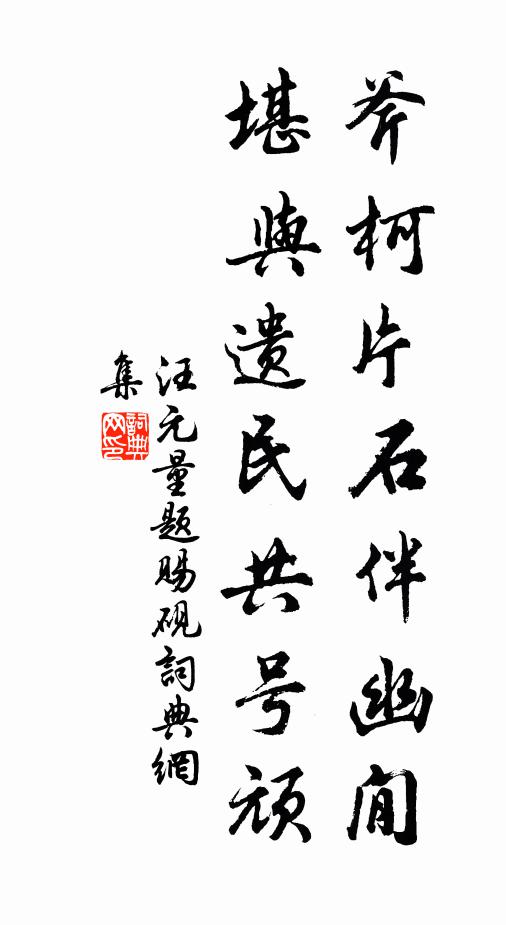 斧柯片石伴幽閒
堪與遺民共号頑
汪元量題賜硯詞典網
集
詞典
网印